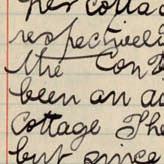 her cotta
respectivel
the Cont
been an a
Cottage Th
but since